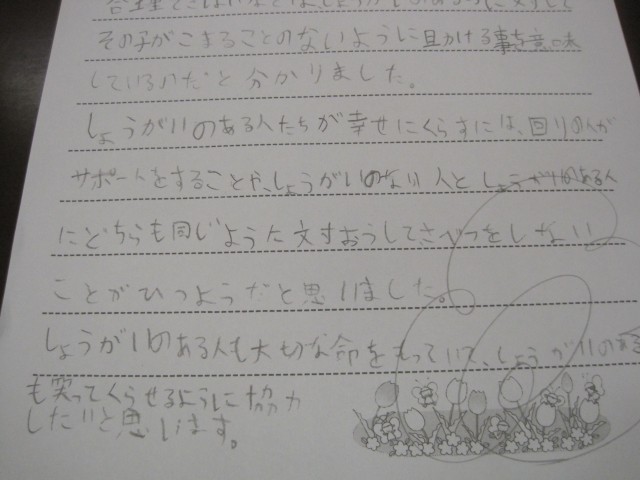 合理てきはいりょとはしょうがいのある子に文すして
その子がこまることのないように見かける事を意味
しているのだと分かりました。
しょうがいのある人たちが幸せにくらすには、回りの人が
サポートをすることや、しょうがいのない人としょうがいのある人
にどちらも同じような文すおうしてさべつをしない
ことがひつようだと思いました。
しょうがいのある人も大切な命をもっていて、しょうがいのある
も笑ってくらせるように協力
したいと思います。